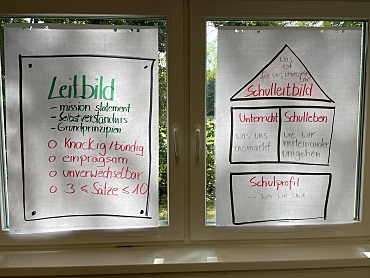 Leitbild
- mission statement
- Selbstverständnis
- Grundprinzipien
o Knackig/bündig
o einprägsam
o unverwechselbar
o 3 ≤ Sätze ≤ 10
was
ist
für uns unverzicht
bar
Schulleitbild
Unterricht
was uns
ausmacht
Schulleben
wie wir
miteinander
umgehen
Schulprofil
wer wir sind